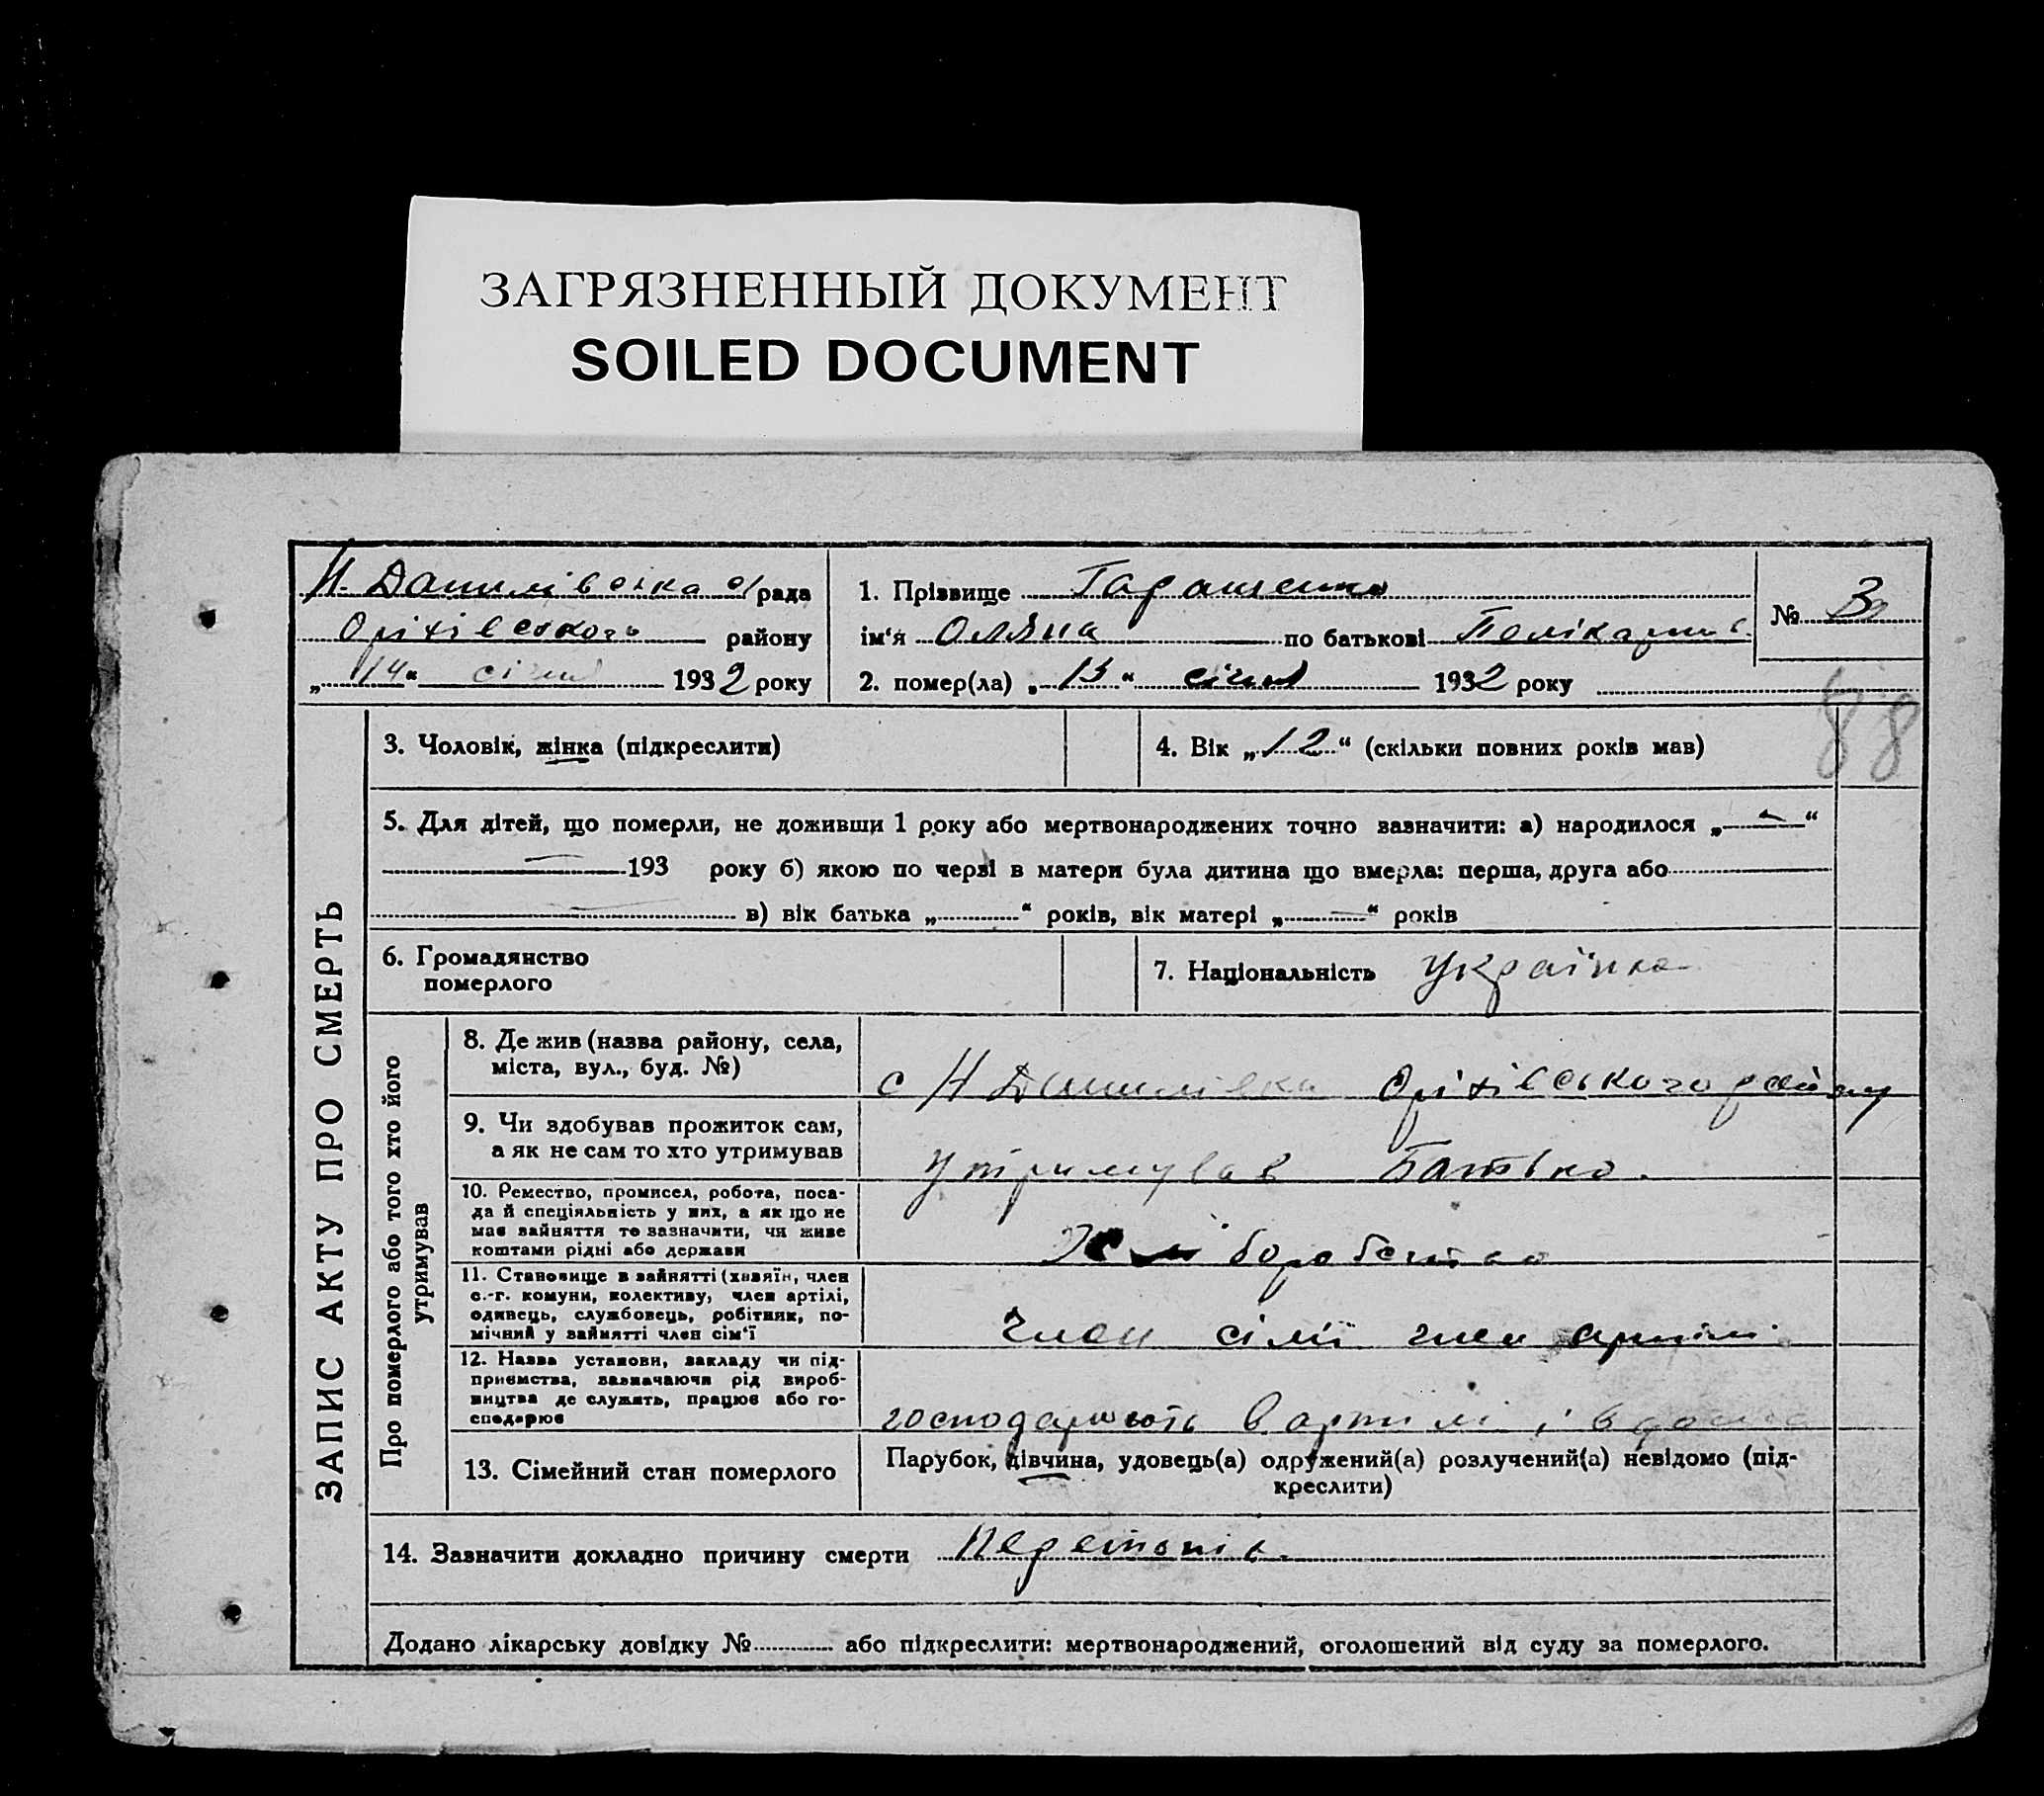 ЗАГРЯЗНЕННЫЙ ДОКУМЕНТ
SOILED DOCUMENT
Н. Данилівська с/рада
Оріхівського району
„14“ січня 1932 року
1. Прізвище Гаращенко
ім‘я Оляна по батькові Полікарпів.
2. помер(ла) „13“ січня 1932 року
№ 3
88
ЗАПИС АКТУ ПРО СМЕРТЬ
3. Чоловік, жінка (підкреслити)
4. Вік „12“ (скільки повних років мав)
5. Для дітей, що померли, не доживши 1 року або мертвонароджених точно зазначити: а) народилося „ — “
— 193 року б) якою по черзі в матери була дитина що вмерла: перша, друга або
в) вік батька „ “ років, вік матері „ — “ років
6. Громадянство
померлого
7. Національність Українка
Про померлого або того хто його
утримував
8. Де жив (назва району, села,
міста, вул., буд. №)
с Н Данилівка Оріхівського району
9. Чи здобував прожиток сам,
а як не сам то хто утримував
Утримував Батько.
10. Ремество, промисел, робота, поса-
да й спеціяльність у них, а як що не
має зайняття то зазначити, чи живе
коштами рідні або держави
Хліборобство
11. Становище в зайнятті (хазяїн, член
с.-г. комуни, колективу, член артілі,
одинець, службовець, робітник, по-
мічний у зайнятті член сім‘ї
Член сімї член артілі.
12. Назва установи, закладу чи під-
приємства, зазначаючи рід вироб-
ництва де служать, працює або го-
сподарює
господарюють в артилі
13. Сімейний стан померлого
Парубок, дівчина, удовець(а) одружений(а) розлучений(а) невідомо (під-
креслити)
14. Зазначити докладно причину смерти
Додано лікарську довідку № або підкреслити: мертвонароджений, оголошений від суду за померлого.